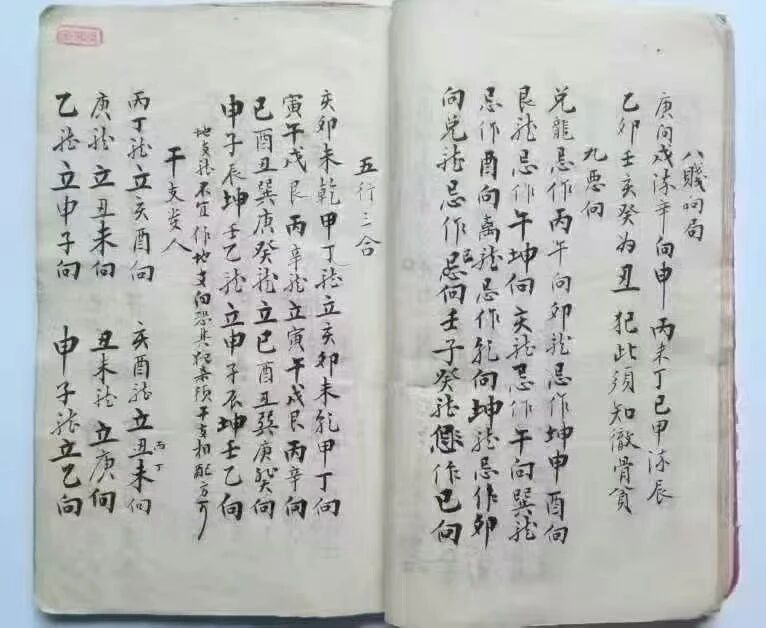 八賤向局
庚向戌流辛向申 丙未丁巳甲流辰
乙卯壬亥癸为丑 犯此須知徹骨貧
九悪向
兌龍忌作丙午向卯龙忌作坤申酉向
艮龙忌作午坤向亥龙忌作午向巽龙
忌作酉向离龙忌作乾向坤龙忌作卯
向兑龙忌作巳向壬子癸龙忌作巳向
五行三合
亥卯未乾甲丁龙立亥卯未乾甲丁向
寅午戌艮丙辛龙立寅午戌艮丙辛向
巳酉丑巽庚癸龙立巳酉丑巽庚癸向
申子辰坤壬乙龙立申子辰坤壬乙向
地支龙不宜作地支向恐其犯杂须干支相配方可
干支发人
丙丁龙立亥酉向 亥酉龙立丑未丙丁向
庚龙立丑未向 丑未龙立庚向
乙龙立申子向 申子龙立乙向